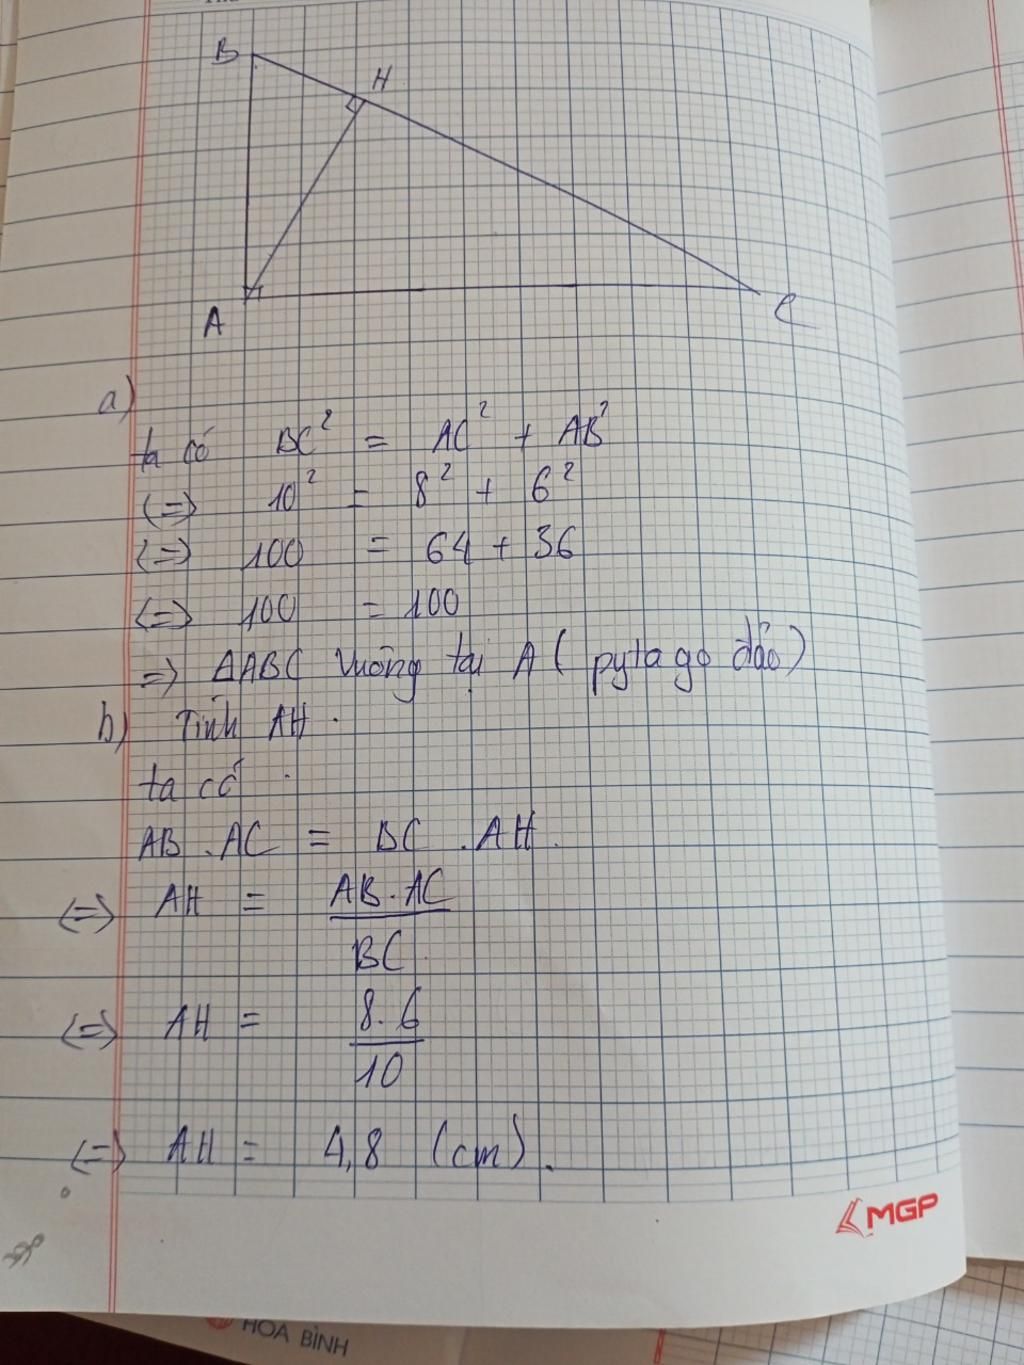 B
H
A
C
a)
ta có BC² = AC² + AB²
(=) 10² = 8² + 6²
(=) 100 = 64 + 36
(=) 100 = 100
=) ΔABC vuông tại A ( pytago đảo)
b) Tính AH.
ta có
AB . AC = BC . AH.
(=) AH = AB . AC
BC
(=) AH = 8.6
10
(=) AH = 4,8 (cm).
MGP
HOA BÌNH